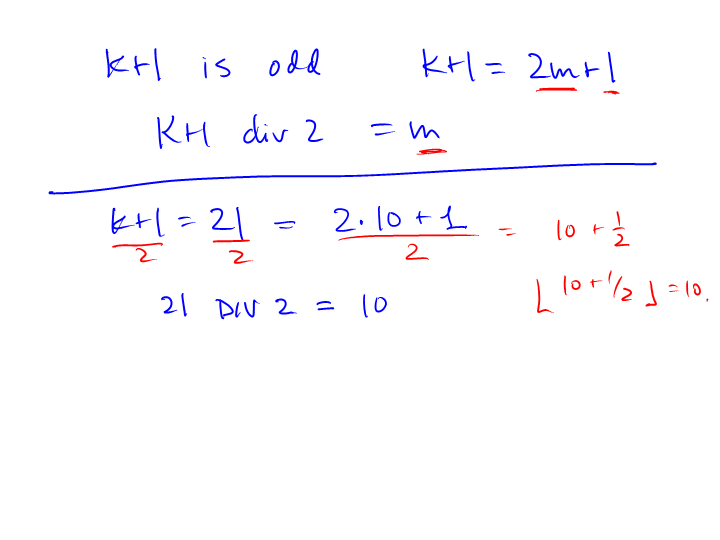 k+1 is odd k+1 = 2m+1
K+1 div 2 = m
k+1/2 = 21/2 = 2·10+1/2 = 10 + 1/2
21 DIV 2 = 10 ⌊10+1/2⌋ = 10.